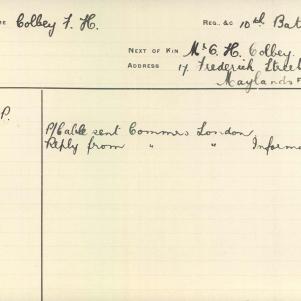 Colbey F. H. REG., &C 10th Bat
NEXT OF KIN Mr G. H. Colbey.
ADDRESS 17 Frederick Street
Maylands
P.
P/Cable sent Commrs London
Reply from " " Informa